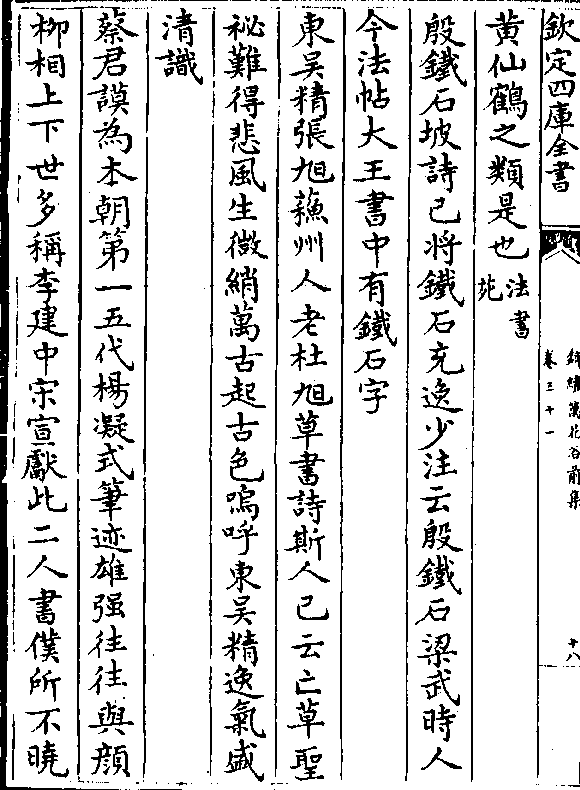 欽定四庫全書
錦繡萬花谷前集
卷三十一
十八
黄仙鶴之類是也法書苑
殷鐵石坡詩已将鐵石充逸少注云殷鐵石梁武時人
今法帖大王書中有鐵石字
東吴精張旭蘓州人老杜旭草書詩斯人已云亡草聖
祕難得悲風生微綃萬古起古色嗚呼東吴精逸氣感
清識
蔡君謨為本朝第一五代楊凝式筆迹雄强往往與顔
柳相上下世多稱李建中宋宣獻此二人書僕所不曉